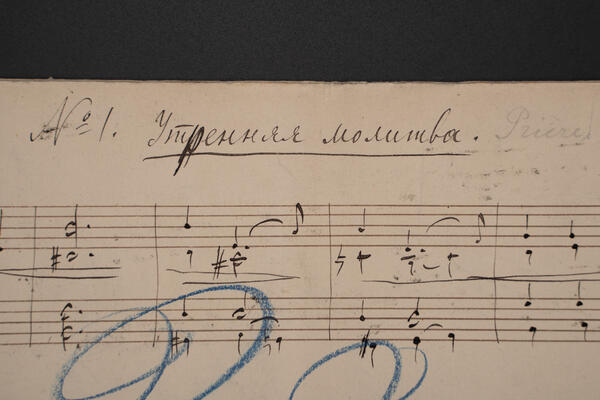 № 1. Утренняя молитва. Prière